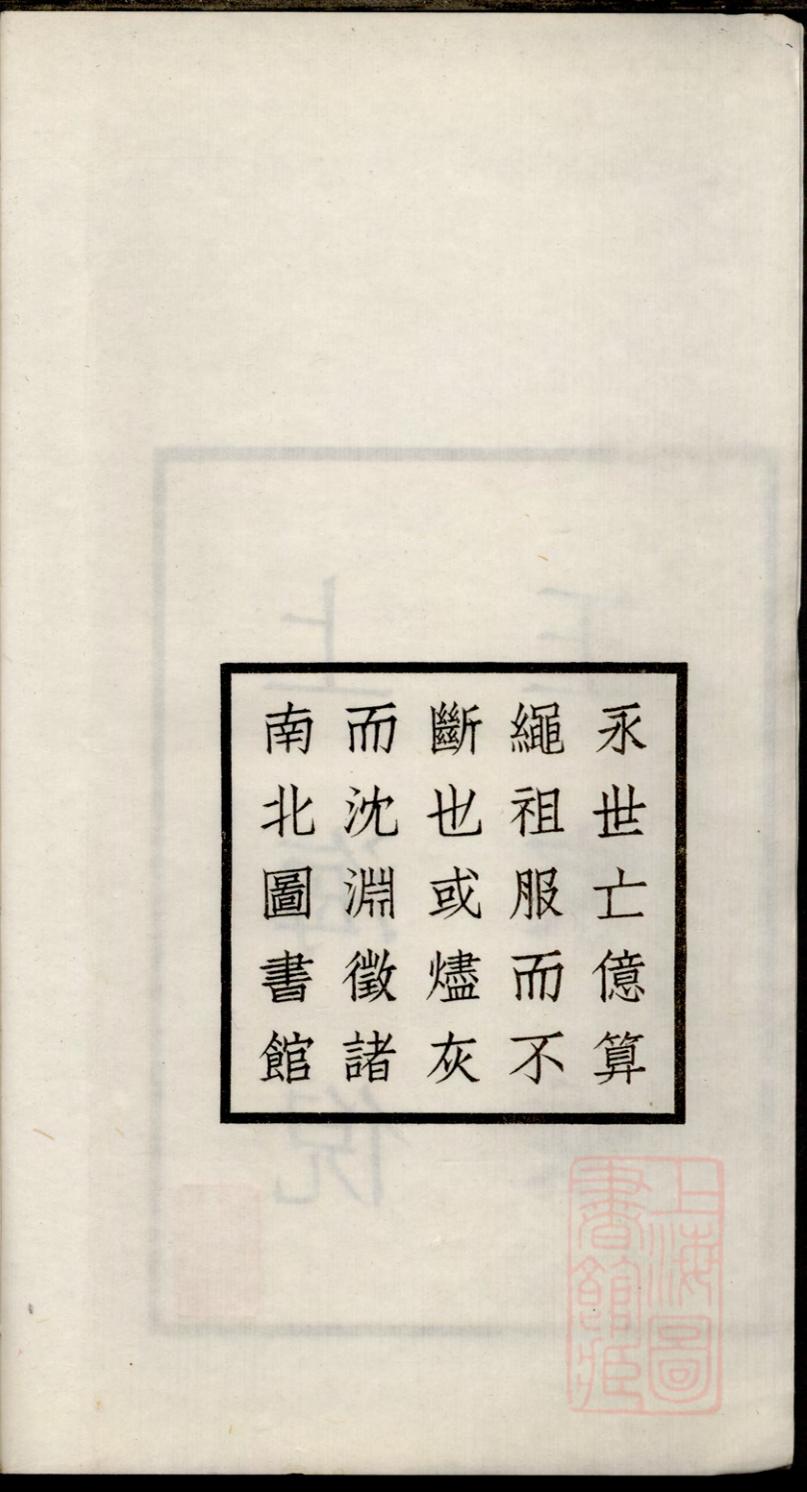 永世亡億算
繩祖服而不
斷也或燼灰
而沈淵徵諸
南北圖書館
上海圖
書館藏